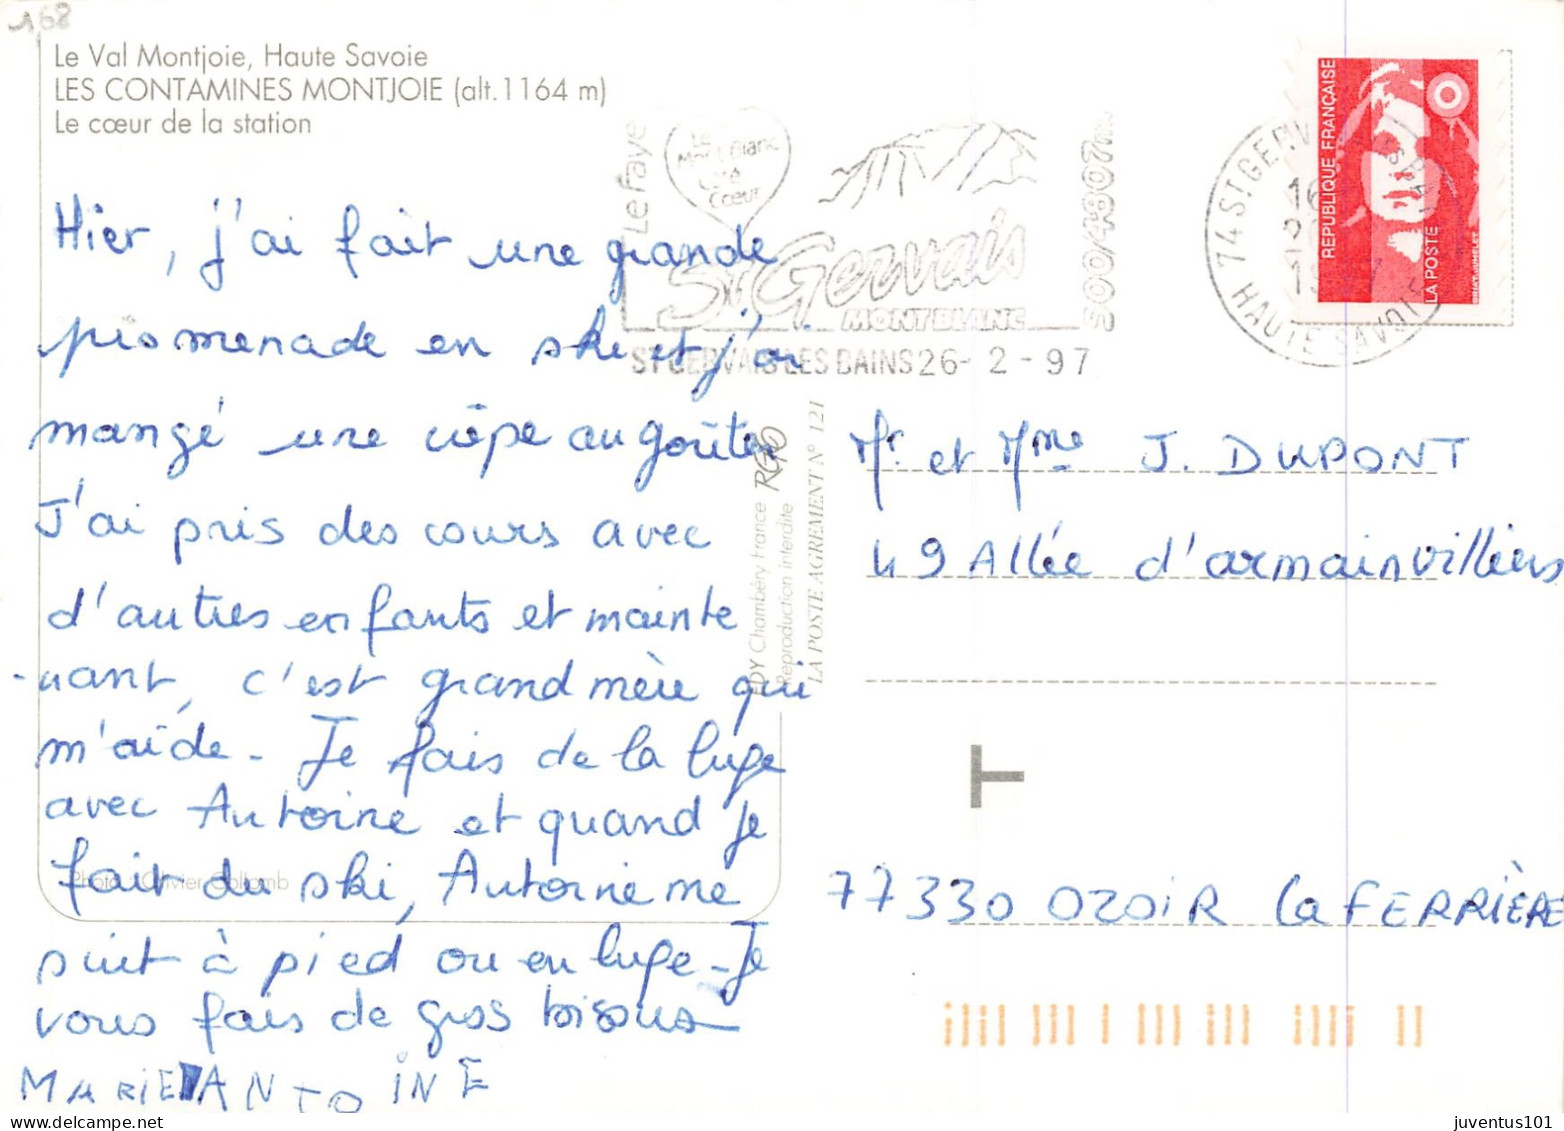 168
Le Val Montjoie, Haute Savoie
LES CONTAMINES MONTJOIE (alt.1164 m)
Le cœur de la station
Hier, j'ai fait une grande
promenade en ski et j'ai
mangé une crêpe au goûter
J'ai pris des cours avec
d'autres enfants et mainte
-nant, c'est grand mère qui
m'aide - Je fais de la luge
avec Antoine et quand je
fait du ski, Antoine me
suit à pied ou en luge - Je
vous fais de gros bisous
MARIE ANTOINE
Photo : Olivier Collomb
Le Faye
Le
Mont-Blanc
Côté
Cœur
St Gervais
MONT BLANC
500/4807m
ST GERVAIS LES BAINS 26- 2 - 97
74 ST. GERVAIS
HAUTE SAVOIE
REPUBLIQUE FRANÇAISE
LA POSTE
EDY Chambéry France
Reproduction interdite
LA POSTE AGREMENT N° 121
Mr. et Mme J. DUPONT
49 Allée d'armainvilliers
T
77330 OZOIR la FERRIÈRE
juventus101